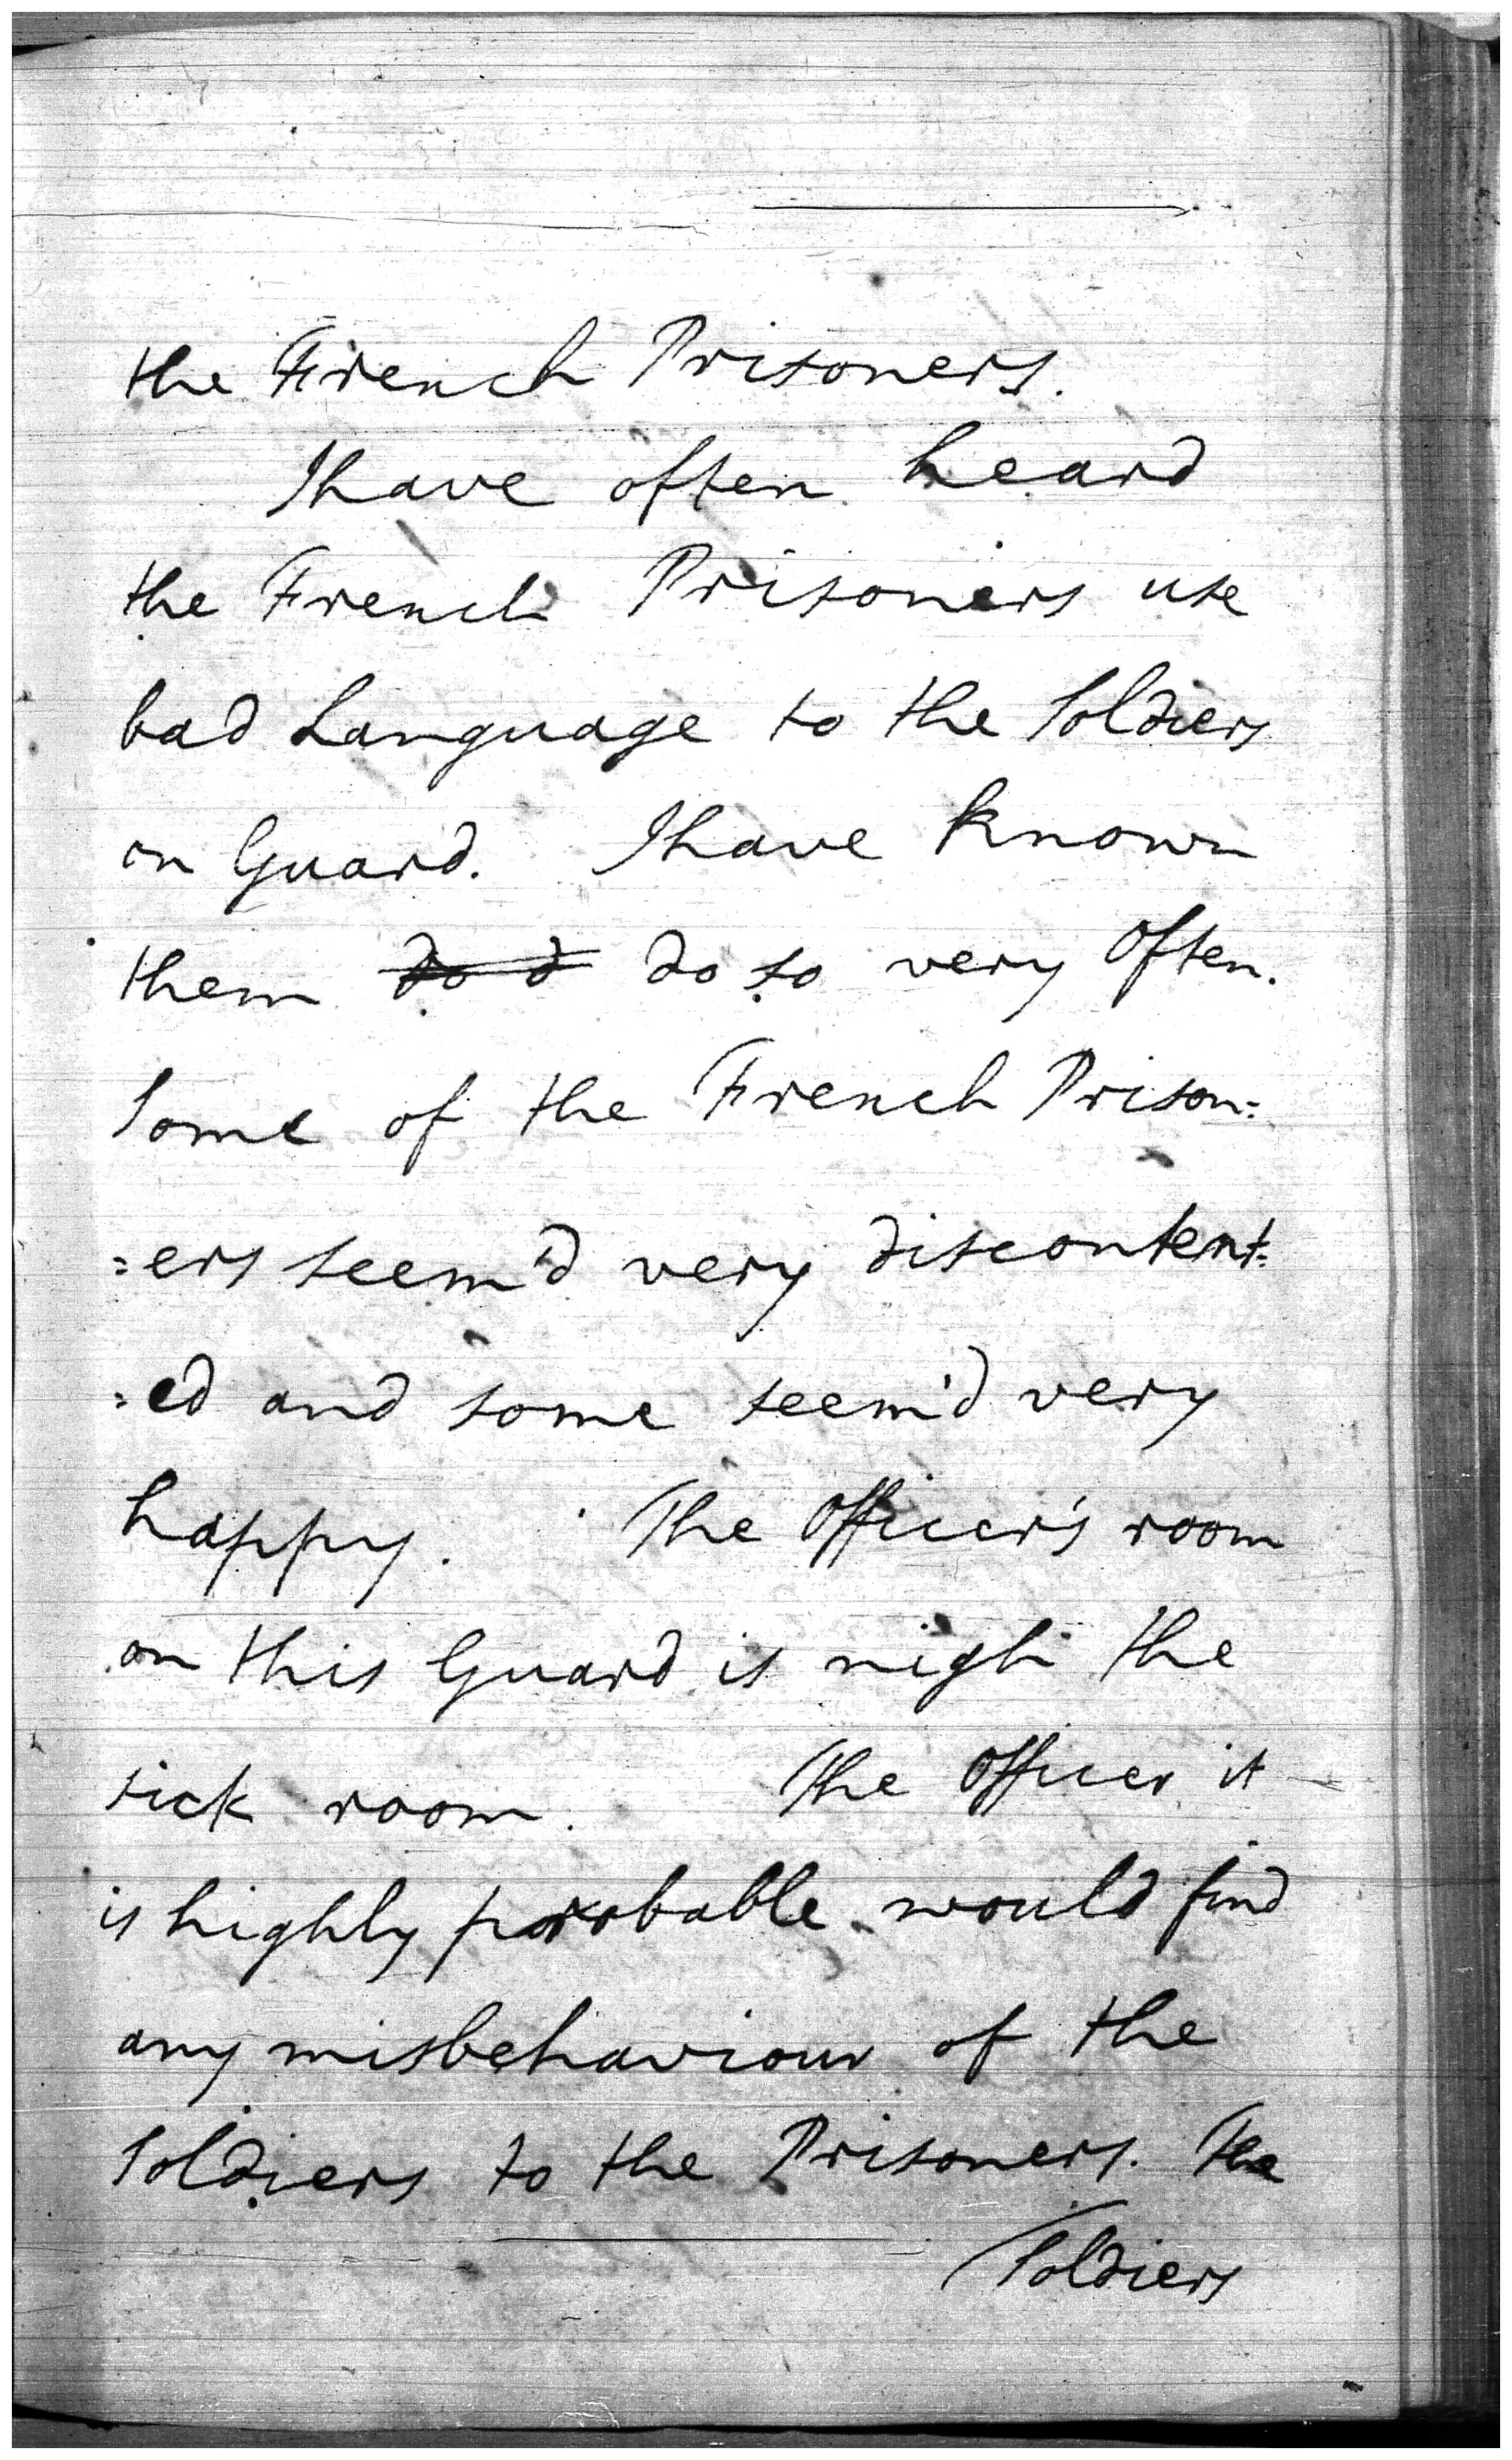 the French Prisoners.
I have often heard
the French Prisoners use
bad Language to the Soldiers
on Guard. I have known
them do d do so very often.
Some of the French Prison=
=ers seem'd very discontent=
=ed and some seem'd very
happy. The Officer's room
on this Guard is nigh the
sick room. The Officer it
is highly probable would find
any misbehaviour of the
Soldiers to the Prisoners. The
Soldiers